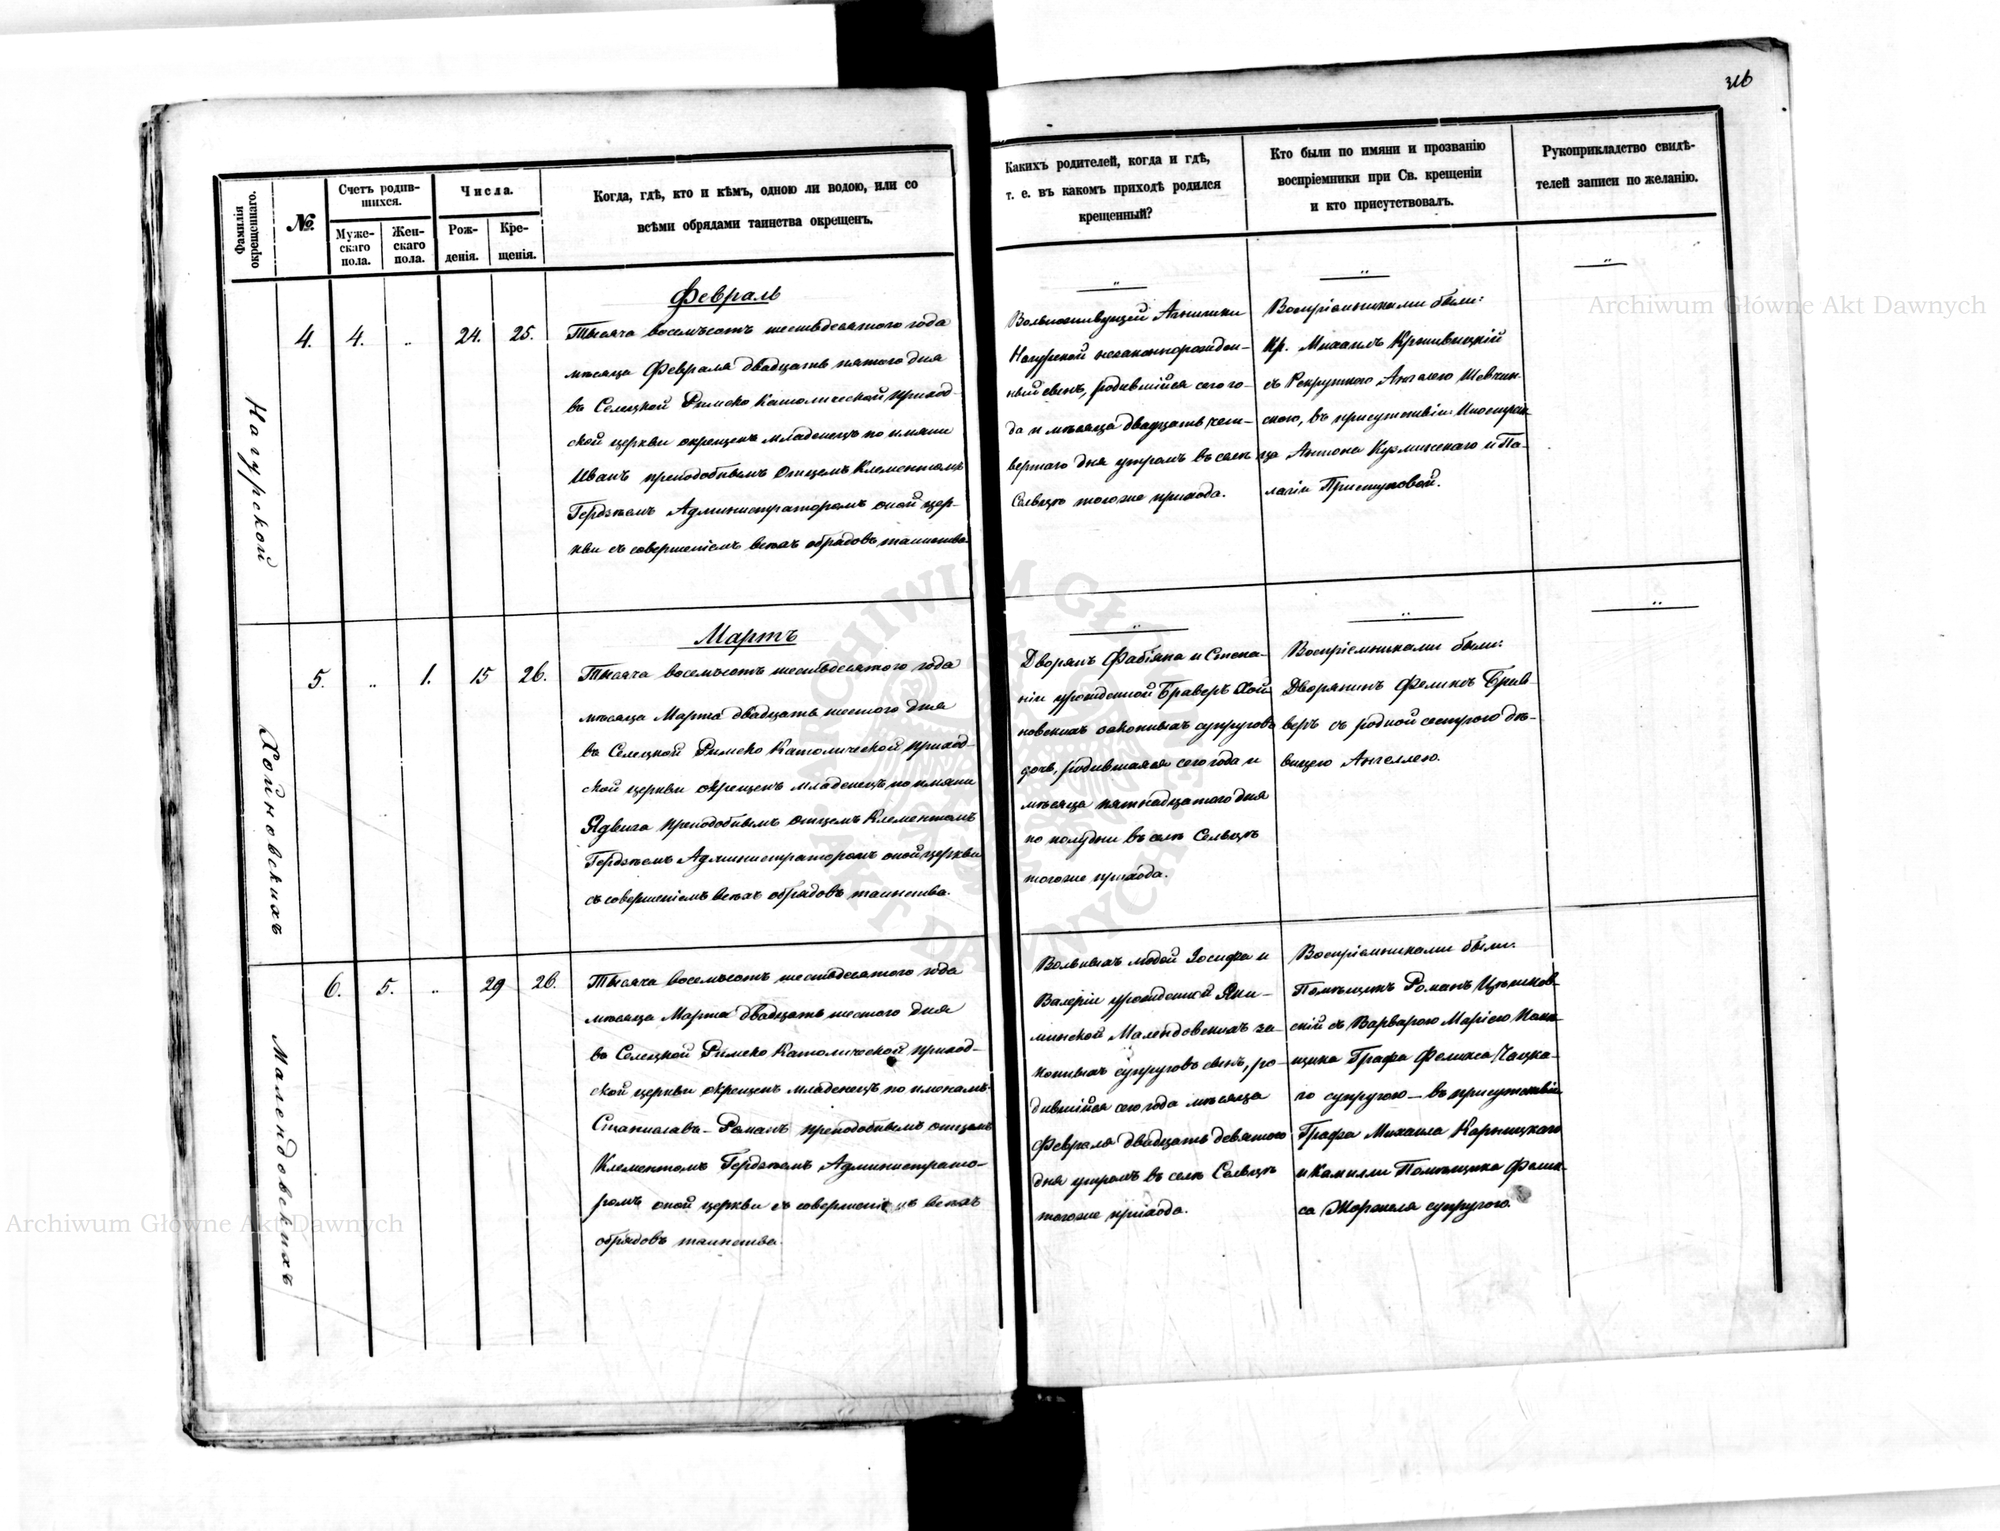 316
Фамилія окрещеннаго.
№
Счетъ родив-
шихся.
Муже-
скаго
пола.
Жен-
скаго
пола.
Числа.
Рож-
денія.
Кре-
щенія.
Когда, гдѣ, кто и кѣмъ, одною ли водою, или со
всѣми обрядами таинства окрещенъ.
Какихъ родителей, когда и гдѣ,
т. е. въ какомъ приходѣ родился
крещенный?
Кто были по имяни и прозванію
воспріемники при Св. крещеніи
и кто присутствовалъ.
Рукоприкладство свидѣ-
телей записи по желанію.
Нагурской
4. 4. „ 24. 25.
Февраль
Тысяча восемьсотъ шестьдесятого года
мѣсяца Февраля двадцать пятого дня
въ Селецкой Римско Католической приход-
ской церкви окрещенъ младенецъ по имяни
Иванъ преподобнымъ Отцемъ Клементомъ
Администраторомъ оной цер-
кви съ совершеніемъ всѣхъ обрядовъ таинства
Вольноживущей
Нагурской незаконнорожден-
ный сынъ, родившійся сего го-
да и мѣсяца двадцать чет-
вертаго дня утромъ въ селѣ
Сельцѣ тогоже прихода.
Воспріемниками были:
Кр. Михаилъ Крживицкій
съ Рекруткою Ангелею Шевчин-
скою, въ присутствіи Иностран-
ца Антона и Па-
лагіи
Хойновскихъ
5. „ 1. 15 26.
Мартъ
Тысяча восемьсотъ шестьдесятого года
мѣсяца Марта двадцать шестого дня
въ Селецкой Римско Католической приход-
ской церкви окрещенъ младенецъ по имяни
Ядвига преподобнымъ отцемъ Клементомъ
Администраторомъ оной церкви
съ совершеніемъ всѣхъ обрядовъ таинства.
Дворянъ Фабіяна и Стефа-
ніи урожденной Браверъ Хой-
новскихъ законныхъ супруговъ
дочь, родившаяся сего года и
мѣсяца пятнадцатого дня
по полудни въ селѣ Сельцѣ
тогоже прихода.
Воспріемниками были:
Дворянинъ Феликсъ
веръ съ родной сестрою дѣ-
вицею Ангеллею.
Малендовскихъ
6. 5. „ 29 26.
Тысяча восемьсотъ шестьдесятого года
мѣсяца Марта двадцать шестого дня
въ Селецкой Римско Католической приход-
ской церкви окрещенъ младенецъ по имонамъ
Станиславъ-Романъ преподобнымъ отцемъ
Клементомъ Администрато-
ромъ оной церкви съ совершеніемъ всѣхъ
обрядовъ таинства.
Вольныхъ людей Іосифа и
Валеріи урожденной Яки-
минской Малендовскихъ за-
конныхъ супруговъ сынъ, ро-
дившійся сего года мѣсяца
Февраля двадцать девятого
дня утромъ въ селѣ Сельцѣ
тогоже прихода.
Воспріемниками были:
Помѣщикъ Романъ
скій съ Варварою Маріею Помѣ-
щика Графа Феликса Чацка-
го супругою — въ присутствіи
Графа Михаила
и Камилли Помѣщика Фелик-
са супругою.
Archiwum Główne Akt Dawnych
Archiwum Główne Akt Dawnych
ARCHIWUM GŁÓWNE AKT DAWNYCH